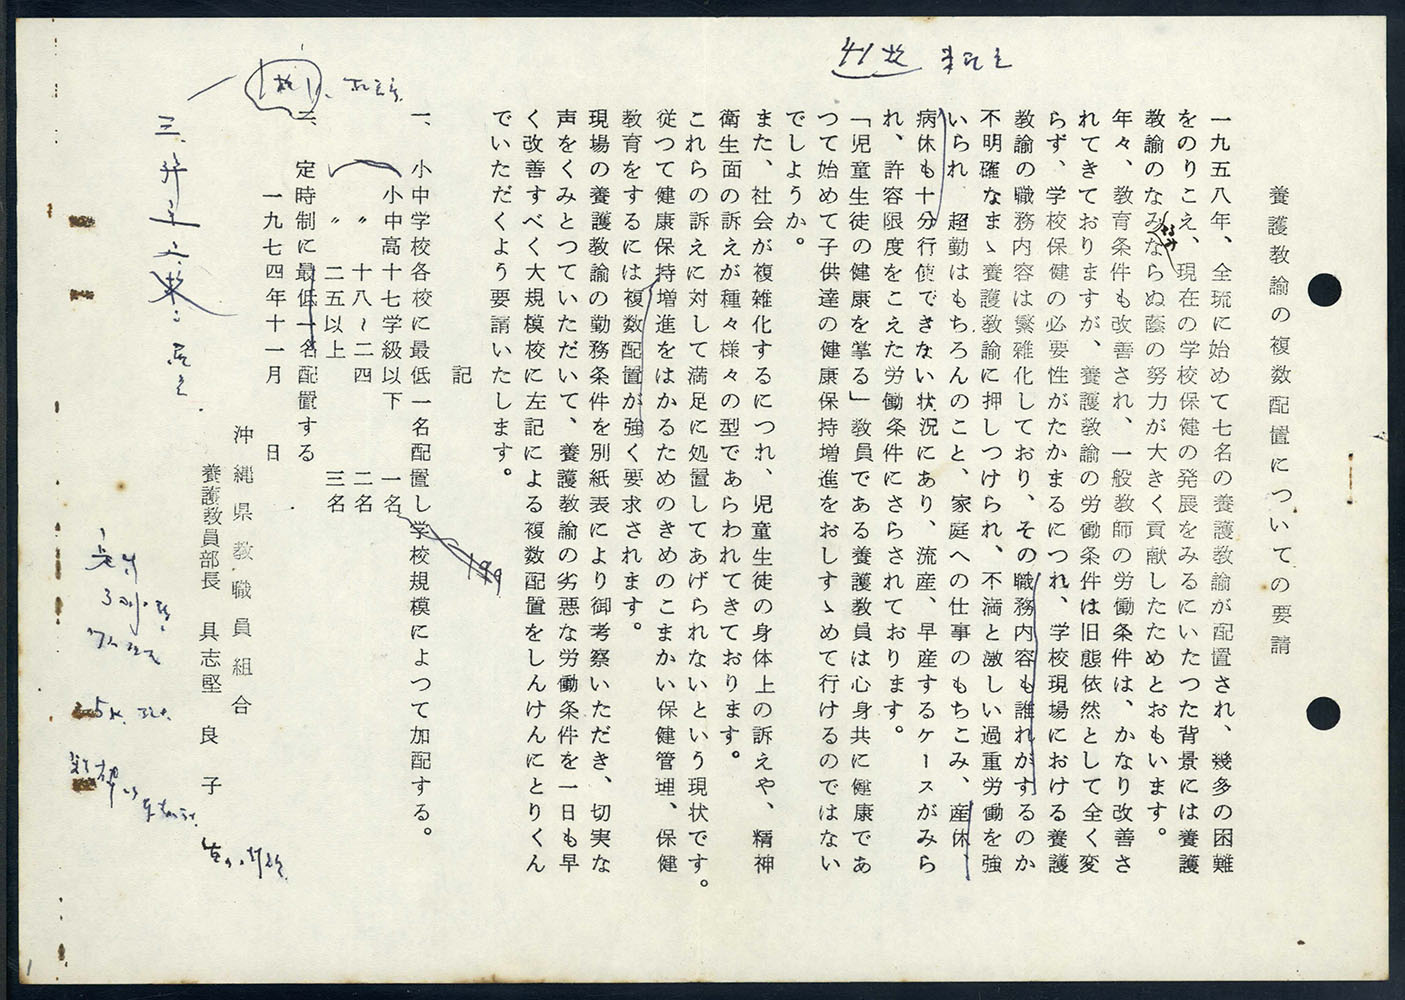 養護教諭の複数配置についての要請
一九五八年、全琉に始めて七名の養護教諭が配置され、幾多の困難
をのりこえ、現在の学校保健の発展をみるにいたつた背景には養護
教諭のなみなみならぬ蔭の努力が大きく貢献したためとおもいます。
年々、教育条件も改善され、一般教師の労働条件は、かなり改善さ
れてきておりますが、養護教諭の労働条件は旧態依然として全く変
らず、学校保健の必要性がたかまるにつれ、学校現場における養護
教諭の職務内容は繁雑化しており、その職務内容も誰れがするのか
不明確なまゝ養護教諭に押しつけられ、不満と激しい過重労働を強
いられ 超勤はもちろんのこと、家庭への仕事のもちこみ、産休、
病休も十分行使できない状況にあり、流産、早産するケースがみら
れ、許容限度をこえた労働条件にさらされております。
「児童生徒の健康を掌る」教員である養護教員は心身共に健康であ
つて始めて子供達の健康保持増進をおしすゝめて行けるのではない
でしようか。
また、社会が複雑化するにつれ、児童生徒の身体上の訴えや、精神
衛生面の訴えが種々様々の型であらわれてきております。
これらの訴えに対して満足に処置してあげられないという現状です。
従つて健康保持増進をはかるためのきめのこまかい保健管理、保健
教育をするには複数配置が強く要求されます。
現場の養護教諭の勤務条件を別紙表により御考察いただき、切実な
声をくみとつていただいて、養護教諭の劣悪な労働条件を一日も早
く改善すべく大規模校に左記による複数配置をしんけんにとりくん
でいただくよう要請いたします。
記
一、小中学校各校に最低一名配置し学校規模によつて加配する。
小中高十七学級以下 一名
〃 十八〜二四 二名
〃 二五以上 三名
二、定時制に最低一名配置する
一九七四年十一月 日
沖縄県教職員組合
養護教員部長 具志堅良子
41枚